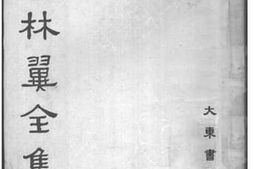 大東書
林翼全集